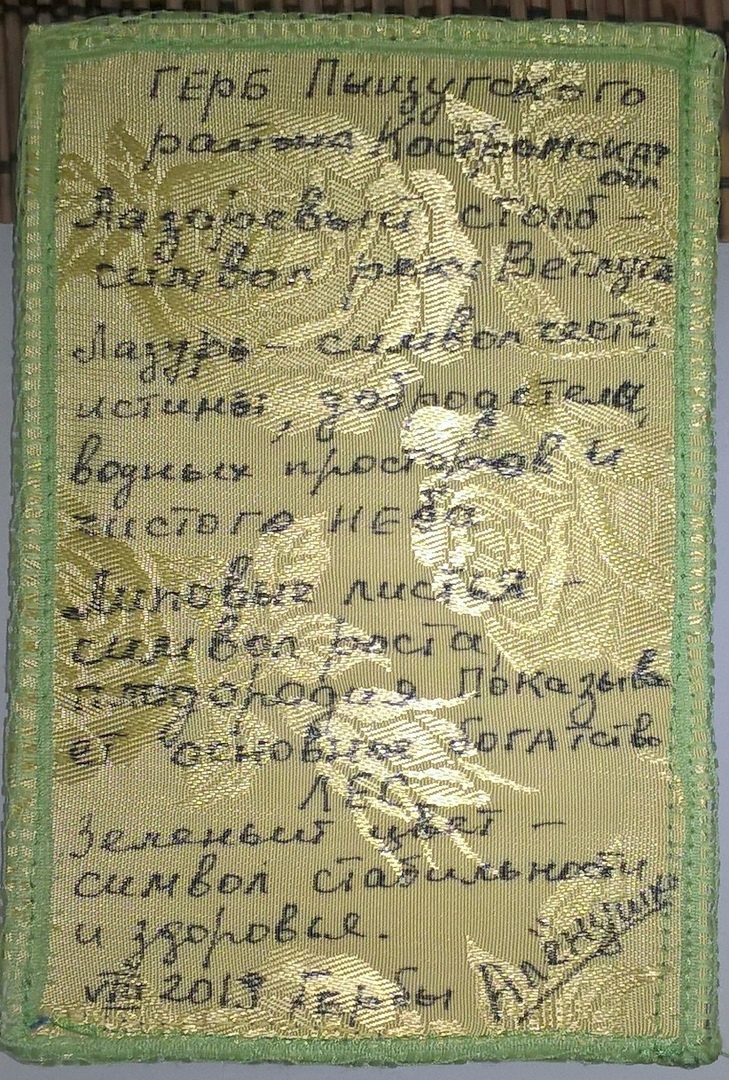 ГЕРБ Пыщугского
района Костромской
обл
Лазоревый столб -
символ реки Ветлуга
Лазурь - символ чести,
истины, добродетели,
водных просторов и
чистого НЕба
Липовые листья -
символ роста,
плодородая Показыва
ет основное богАтство
ЛЕС
Зеленый цвет -
символ стабильности
и здоровья.
VIII 2013 Гербы
Алёнушка